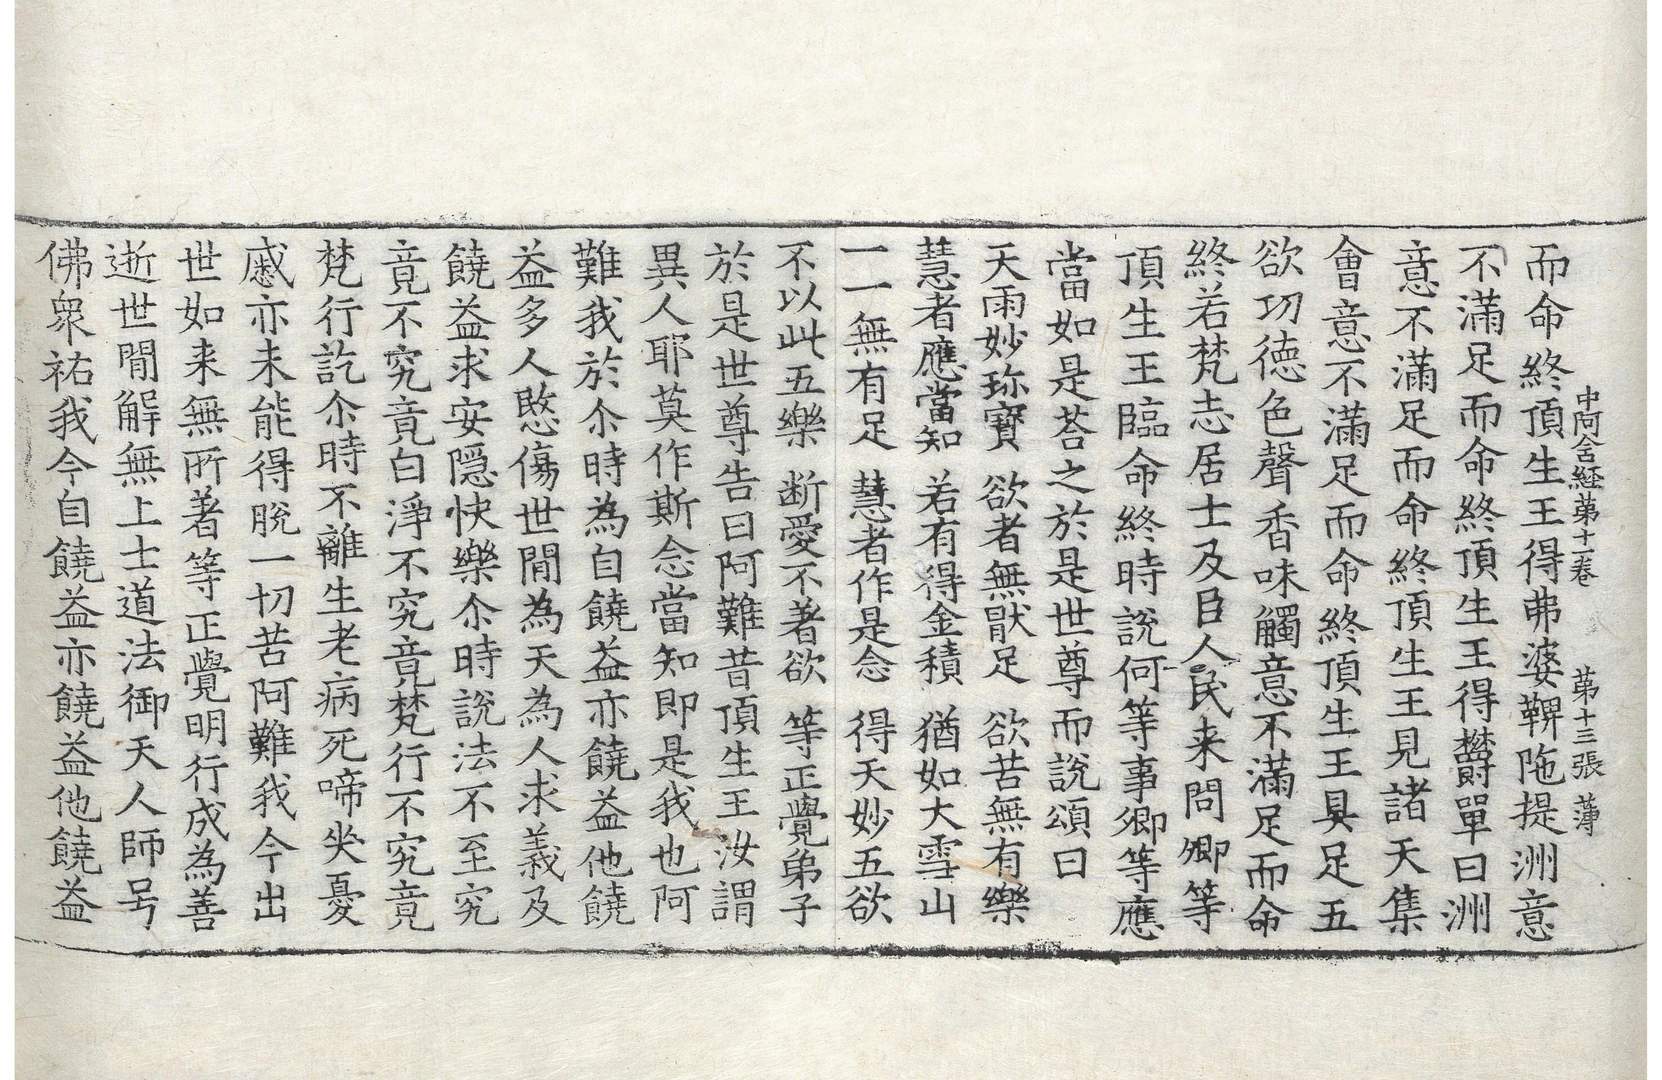 中阿含経苐十一卷 苐十三張 薄
而命終頂生王得弗婆鞞陁提洲意
不滿足而命終頂生王得欝單曰洲
意不滿足而命終頂生王見諸天集
會意不滿足而命終頂生王具足五
欲功德色聲香味觸意不滿足而命
終若梵志居士及臣人民来問卿等
頂生王臨命終時說何等事卿等應
當如是荅之於是世尊而說頌曰
天雨妙珎寶 欲者無猒足 欲苦無有樂
慧者應當知 若有得金積 猶如大雪山
一一無有足 慧者作是念 得天妙五欲
不以此五樂 断愛不著欲 等正覺弟子
於是世尊告曰阿難昔頂生王汝謂
異人耶莫作斯念當知即是我也阿
難我於尒時為自饒益亦饒益他饒
益多人愍傷世間為天為人求義及
饒益求安隱快樂尒時說法不至究
竟不究竟白淨不究竟梵行不究竟
梵行訖尒時不離生老病死啼哭憂
慼亦未能得脫一切苦阿難我今出
世如来無所著等正覺明行成為善
逝世間解無上士道法御天人師号
佛衆祐我今自饒益亦饒益他饒益